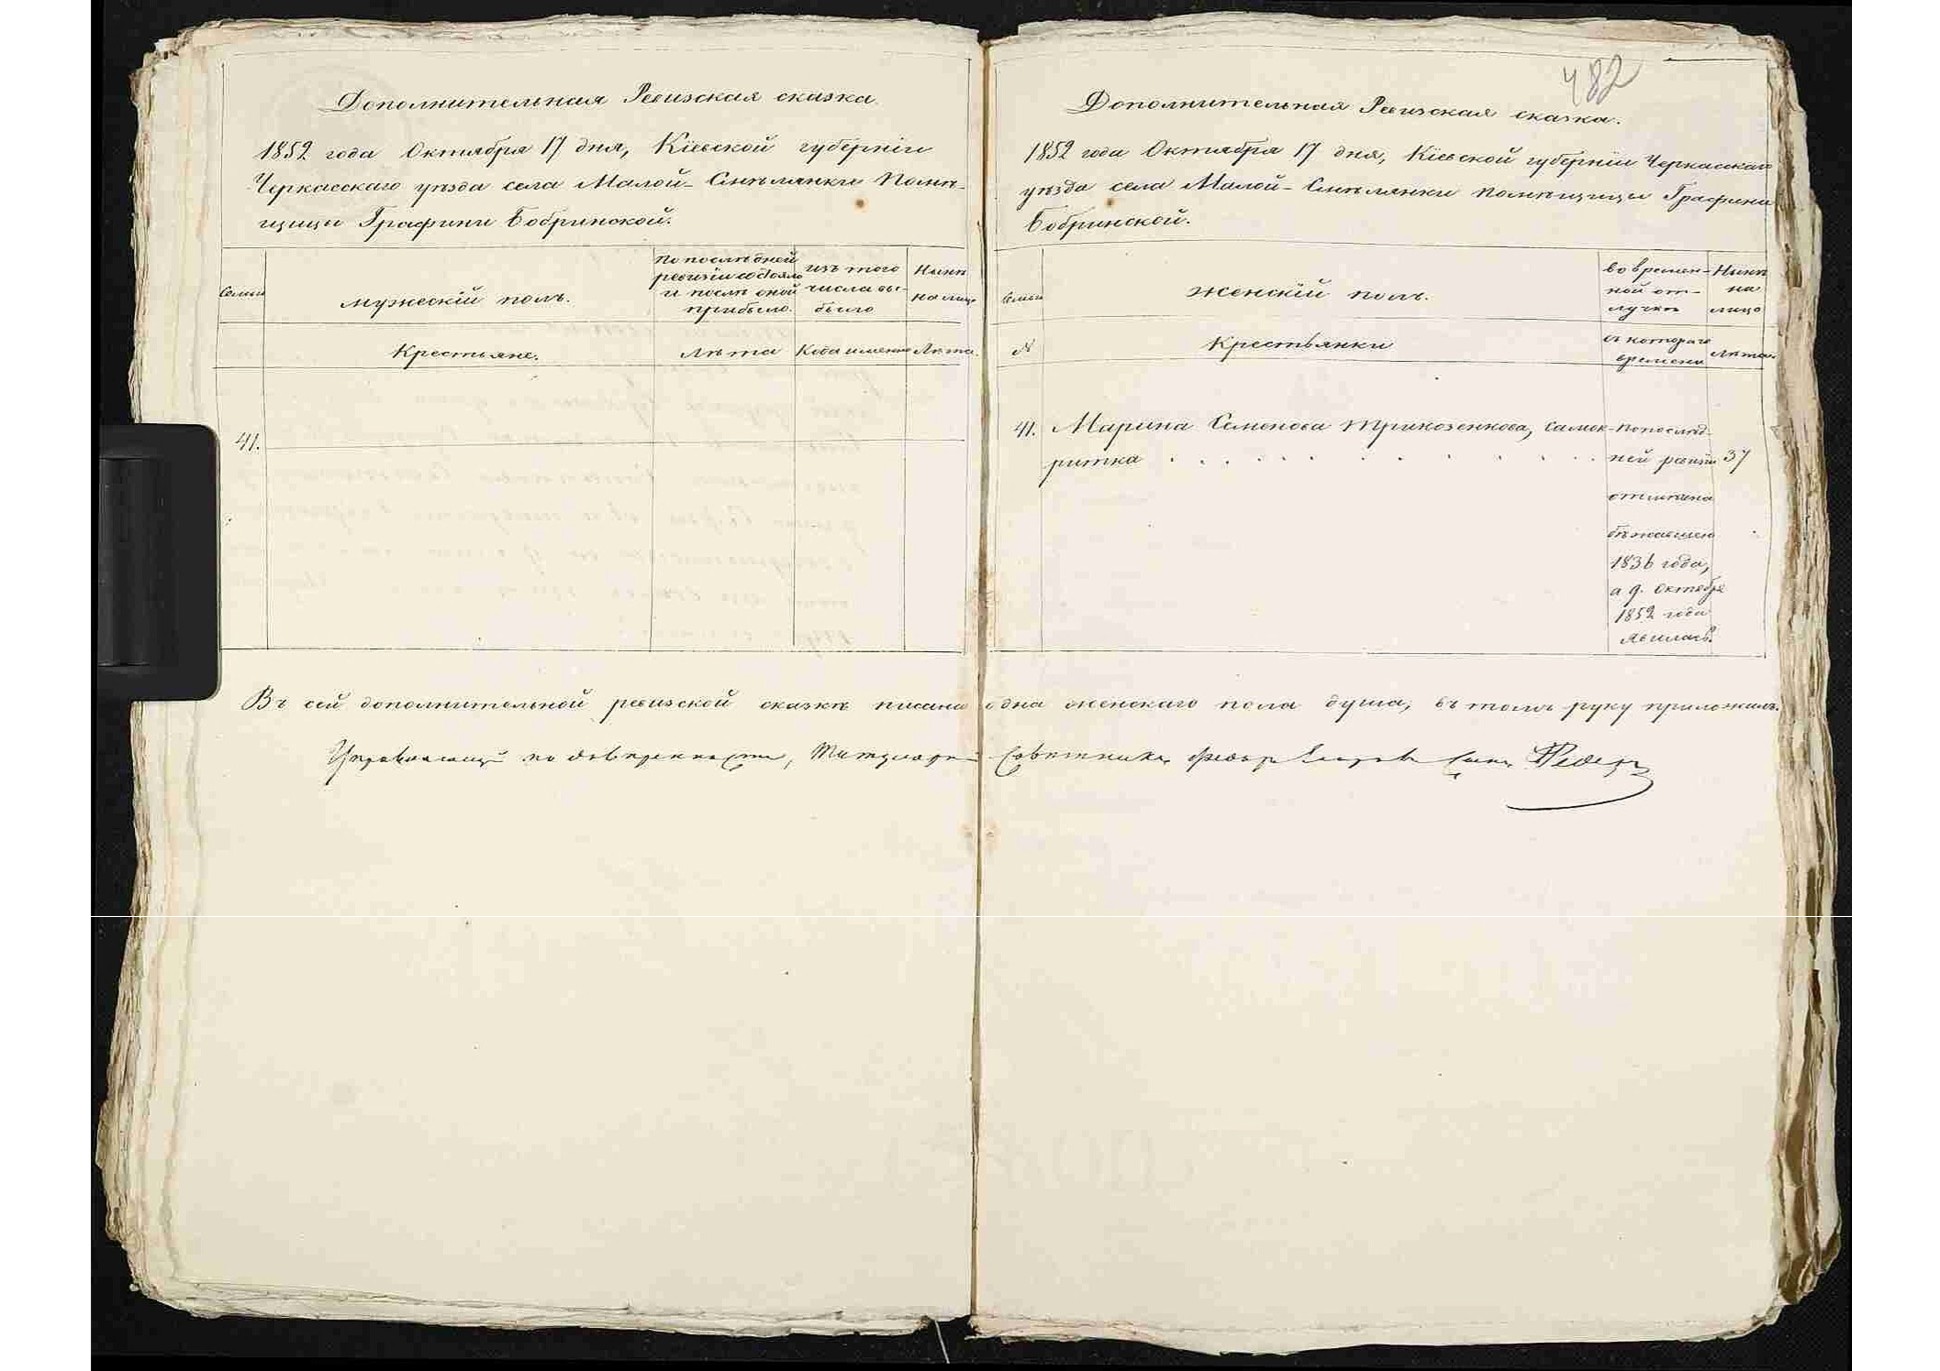 Дополнительная Ревизская сказка.
1852 года Октября 17 дня, Кіевской губерніи
Черкасскаго уѣзда села Малой-Смѣлянки Помѣ-
щицы Графини Бобринской.
Семьи
мужескій полъ.
По послѣдней
ревизіи состояло
и послѣ оной
прибыло.
изъ того
числа вы-
было
Нынѣ
на лицо
Крестьяне.
Лѣта
Когда именно
Лѣта.
41.
482
Дополнительная Ревизская сказка.
1852 года Октября 17 дня, Кіевской губерніи Черкасскаго
уѣзда села Малой-Смѣлянки помѣщицы Графини
Бобринской.
Семьи
женскій полъ.
во времен-
ной от-
лучкѣ
Нынѣ
на
лицо
№
Крестьянки
съ котораго
времени
Лѣта.
41. Марина Семенова Трикозенкова, самок-
ритка
по послѣд-
ней ревизіи
отмѣчена
бѣжавшею
1836 года,
а 9. октября
1852 года
явилась.
37
Въ сей дополнительной ревизской сказкѣ писана одна женскаго пола душа, въ томъ руку приложилъ.
Управляющій по довѣренности, Титулярный Совѣтникъ Федоръ Сынъ